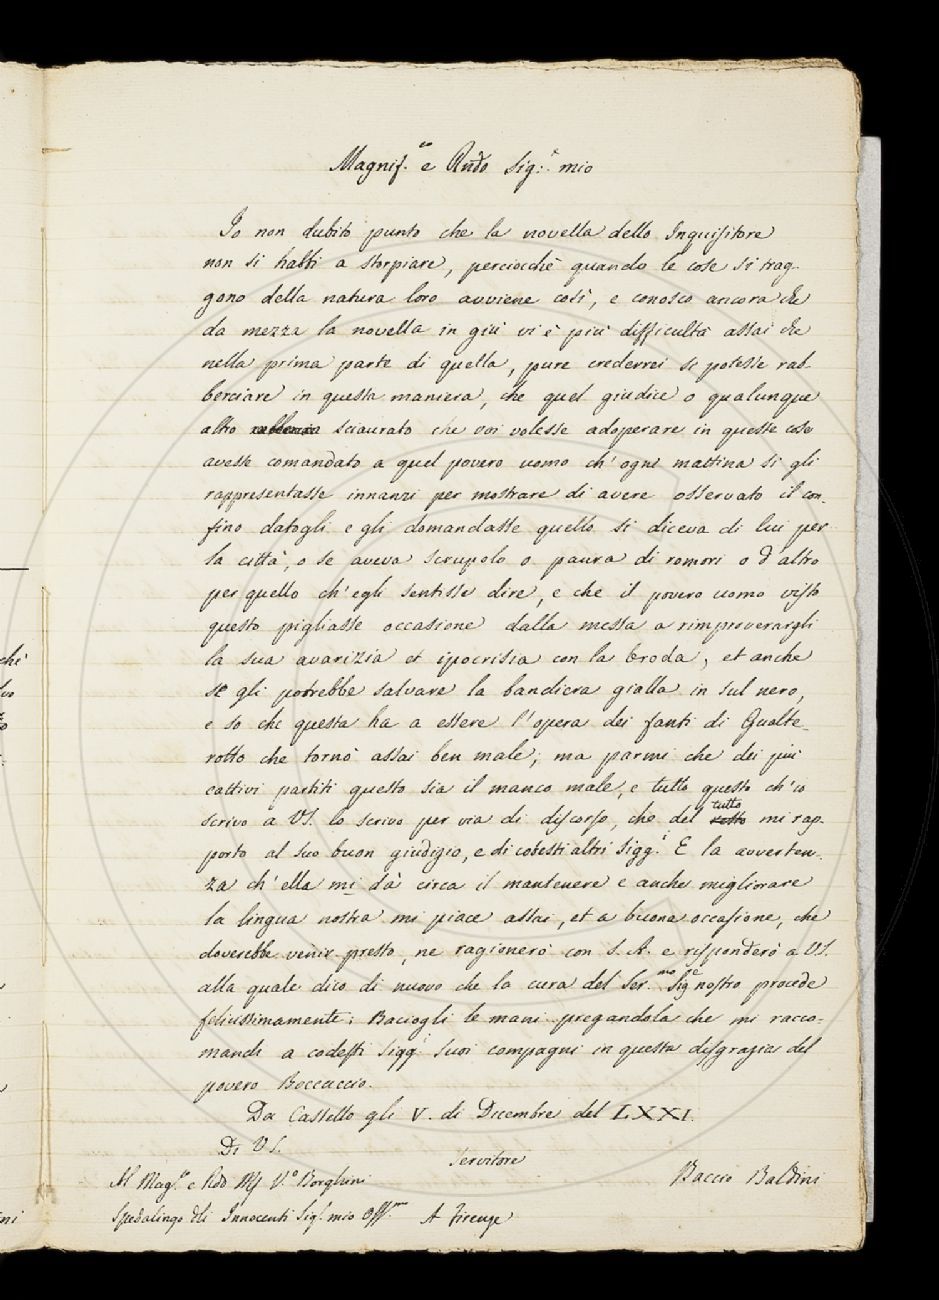 Magnif.co e Rndo Sig:r mio
Io non dubito punto che la novella dello Inquisitore
non si habbi a storpiare, perciocchè quando le cose si trag-
gono della natura loro avviene così, e conosco ancora che
da mezza la novella in giù vi è più difficultà assai che
nella prima parte di quella, pure crederrei si potesse rab-
berciare in questa maniera, che quel giudice o qualunque
altro sciaurato che voi volesse adoperare in queste cose
avesse comandato a quel povero uomo ch'ogni mattina si gli
rappresentasse innanzi per mostrare di avere osservato il con-
fino datogli e gli domandasse quello si diceva di lui per
la città, o se aveva scrupolo o paura di romori o d'altro
per quello ch'egli sentisse dire, e che il povero uomo visto
questo pigliasse occasione dalla messa a rimproverargli
la sua avarizia et ipocrisia con la broda, et anche
se gli potrebbe salvare la bandiera gialla in sul nero,
e so che questa ha a essere l'opera dei fanti di Gualte-
rotto che tornò assai ben male; ma parmi che dei più
cattivi partiti questo sia il manco male, e tutto questo ch'io
scrivo a VS. lo scrivo per via di discorso, che del tutto mi rap-
porto al suo buon giudizio, e di cotesti altri Sigg.i E la avverten-
za ch'ella mi dà circa il mantenere e anche migliorare
la lingua nostra mi piace assai, et a buona occasione, che
doverebbe venir presto, ne ragionerò con S. A. e risponderò a VS.
alla quale dico di nuovo che la cura del Ser.mo Sig.e nostro procede
felicissimamente: Baciogli le mani pregandola che mi racco-
mandi a codesti Sigg.i suoi compagni in questa disgrazia del
povero Boccaccio.
Da Castello gli V. di Dicembre del LXXI.
Di VS.
Servitore
Baccio Baldini
Al Mag.co e Rdo Mf V.o Borghini
Spedalingo dli Innocenti Sig.r mio Oss.mo A Firenze